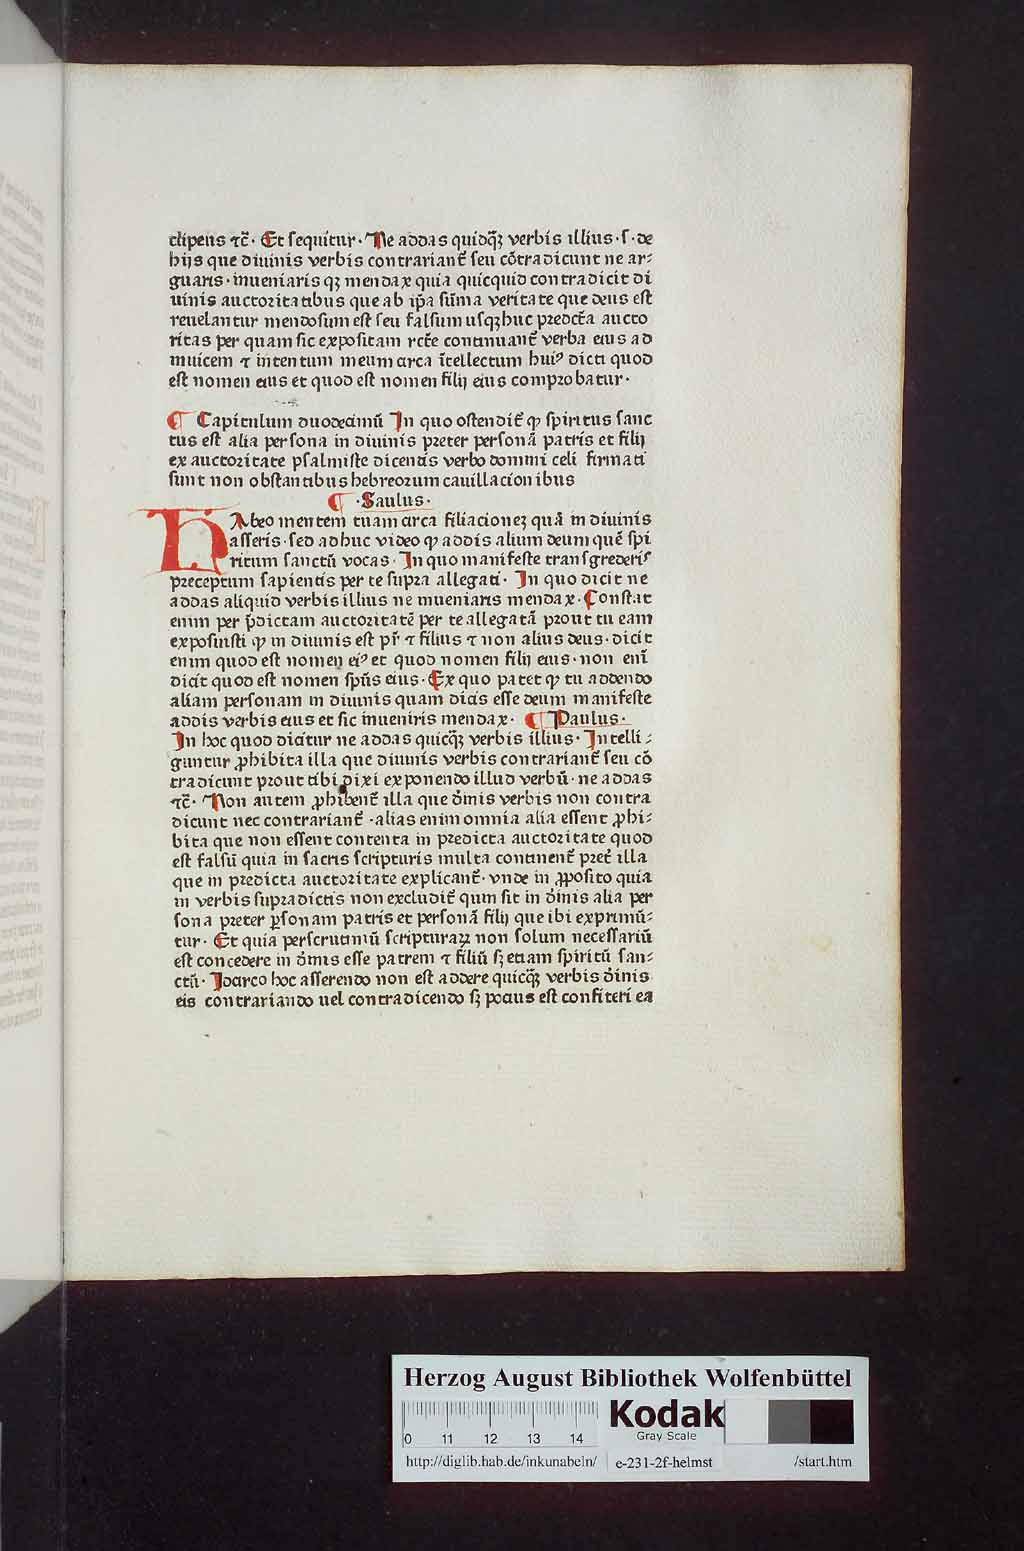 clipeus ⁊c̄· Et sequitur· Ne addas quidqꝫ verbis illius· s· de
hijs que diuinis verbis contrariant᷑ seu cōtradicunt ne ar⸗
guaris· inueniaris qꝫ mendax quia quicquid contradicit di
uinis auctoritatibus que ab ip̄a sūma veritate que deus est
reuelantur mendosum est seu falsum usqꝫ huc predcт̄a aucto
ritas per quam sic expositam rct̄e continuant᷑ verba eius ad
inuicem ⁊ intentum meum circa ītellectum huiꝰ dicti quod
est nomen eius et quod est nomen filij eius comprobatur·
¶ Capitulum duodecimū In quo ostendit᷑ ꝙ spiritus sanc
tus est alia persona in diuinis preter personā patris et filij
ex auctoritate psalmiste dicentis verbo domini celi firmati
sunt non obstantibus hebreorum cauillacionibus
¶ ·Saulus·
HAbeo mentem tuam circa filiacionez quā in diuinis
asseris· sed adhuc video ꝙ addis alium deum quē spi
ritum sanctū vocas· In quo manifeste transgrederiꝭ
preceptum sapientis per te supra allegati· In quo dicit ne
addas aliquid verbis illius ne inueniaris mendax· Constat
enim per p̄dictam auctoritatē per te allegatā prout tu eam
exposuisti ꝙ in diuinis est pr̄ ⁊ filius ⁊ non alius deus· dicit
enim quod est nomen eiꝰ et quod nomen filij eius· non enī
dicit quod est nomen spūs eius· Ex quo patet ꝙ tu addendo
aliam personam in diuinis quam dicis esse deum manifeste
addis verbis eius et sic inueniris mendax· ¶ Paulus·
In hoc quod dicitur ne addas quicqꝫ verbis illius· Intelli⸗
guntur ꝓhibita illa que diuinis verbis contrariant᷑ seu cō
tradicunt prout tibi dixi exponendo illud verbū· ne addas
⁊c̄· Non autem ꝓhibent᷑ illa que d̄inis verbis non contra
dicunt nec contrariant᷑ ·alias enim omnia alia essent ꝓhi⸗
bita que non essent contenta in predicta auctoritate quod
est falsū quia in sacris scripturis multa continent᷑ pret᷑ illa
que in predicta auctoritate explicant᷑· vnde in ꝓposito quia
in verbis supradictis non excludit᷑ quin sit in d̄inis alia per
sona preter ꝑsonam patris et personā filij que ibi exprimū⸗
tur· Et quia perscrutiniū scripturaꝝ non solum necessariū
est concedere in d̄inis esse patrem ⁊ filiū sꝫ etiam spiritū san⸗
ctū· Idcirco hoc asserendo non est addere quicqꝫ verbis d̄inis
eis contrariando uel contradicendo sꝫ pocius est confiteri ea
Herzog August Bibliothek Wolfenbüttel
0 11 12 13 14
Kodak
Gray Scale
http://diglib.hab.de/inkunabeln/ e-231-2f-helmst /start.htm